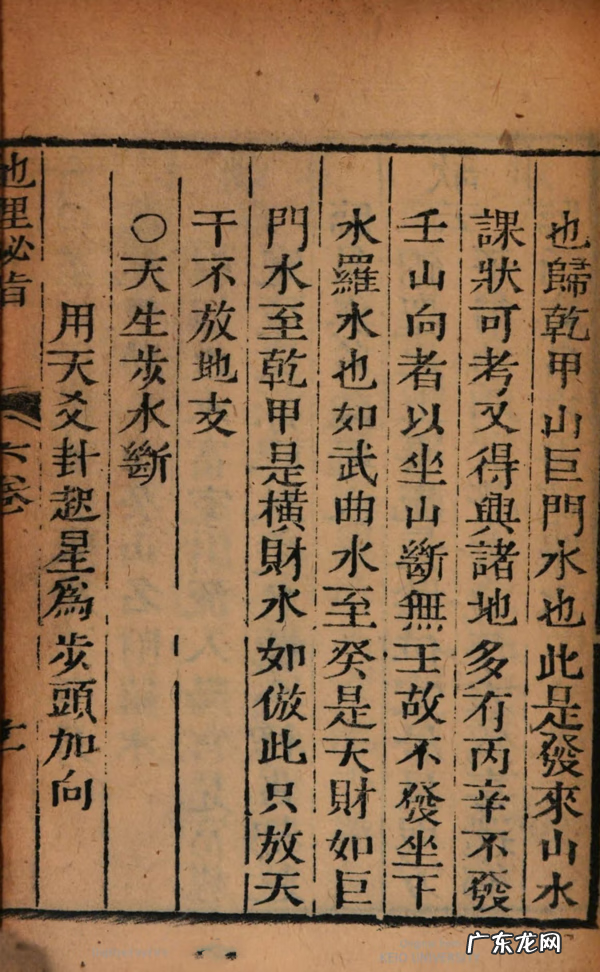 也歸乾甲山巨門水也此是發來山水
課狀可考又得與諸地多有丙辛不發
壬山向者以坐山斷無壬故不發坐下
水羅水也如武曲水至癸是天財如巨
門水至乾甲是橫財水如倣此只放天
干不放地支
○天生步水斷
用天爻卦起星爲步頭加向
地理秘旨
六卷
广东龙网